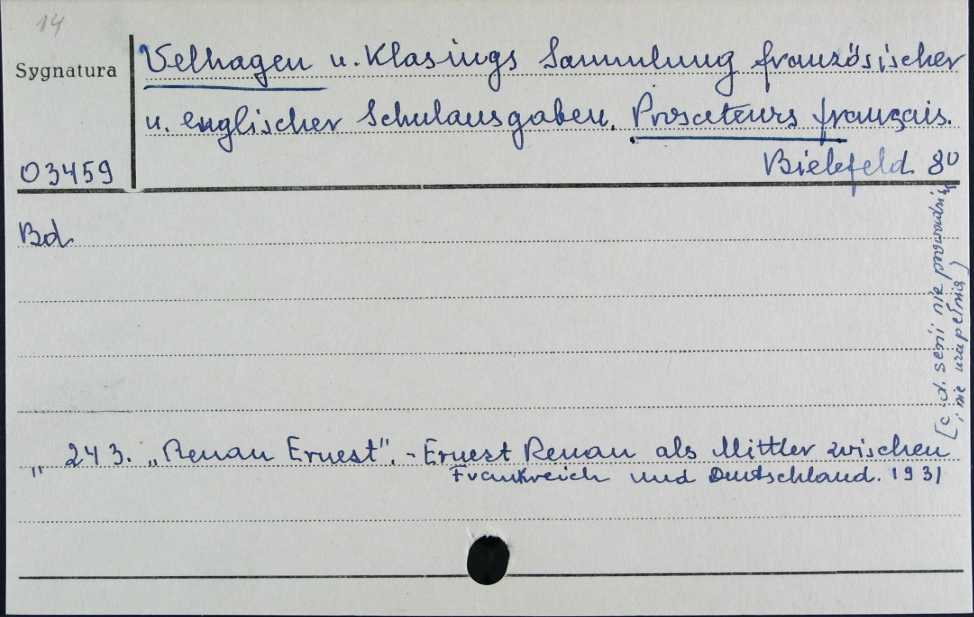 14
Sygnatura
Velhagen u. Klasings Sammlung französischer
u. englischer Schulausgaben. Prosateurs français.
03459
Bielefeld 8°
Bd
„ 243. „Renan Ernest". - Ernest Renan als Mittler zwischen
Frankreich und Deutschland. 1931
[c.d. serii nie prowadzić,
i nie uzupełniać)